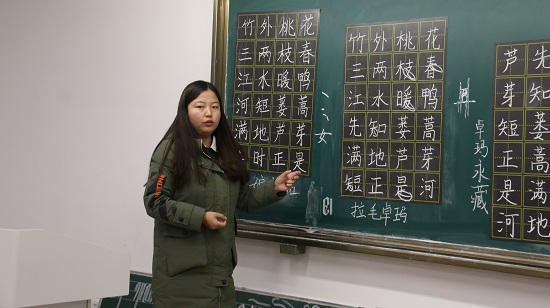 竹外桃花
三两枝春
江水暖鸭
河短蒌蒿
满地芦芽
时正是
女
竹外桃花
三两枝春
江水暖鸭
先知蒌蒿
满地芦芽
短正是河
拉毛卓玛
卓玛永藏
芦先
芽知
短蒌
正蒿
是满
河地